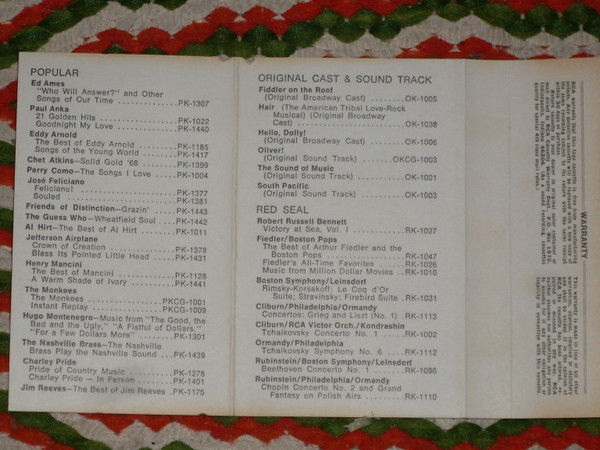 POPULAR
Ed Ames
"Who Will Answer?" and Other
Songs of Our Time ............PK-1307
Paul Anka
21 Golden Hits ...............PK-1022
Goodnight My Love ............PK-1440
Eddy Arnold
The Best of Eddy Arnold ......PK-1185
Songs of the Young World .....PK-1417
Chet Atkins—Solid Gold '68 .....PK-1399
Perry Como—The Songs I Love ....PK-1004
José Feliciano
Feliciano! ...................PK-1377
Souled .......................PK-1381
Friends of Distinction—Grazin' ....PK-1443
The Guess Who—Wheatfield Soul ..PK-1442
Al Hirt—The Best of Al Hirt .....PK-1011
Jefferson Airplane
Crown of Creation ............PK-1378
Bless Its Pointed Little Head ....PK-1431
Henry Mancini
The Best of Mancini ..........PK-1128
A Warm Shade of Ivory ........PK-1441
The Monkees
The Monkees .................PKCG-1001
Instant Replay ..............PKCG-1009
Hugo Montenegro—Music from "The Good, the
Bad and the Ugly," "A Fistful of Dollars,"
"For a Few Dollars More" .....PK-1301
The Nashville Brass—The Nashville
Brass Play the Nashville Sound ...PK-1439
Charley Pride
Pride of Country Music .......PK-1278
Charley Pride — In Person .....PK-1401
Jim Reeves—The Best of Jim Reeves .PK-1175
ORIGINAL CAST & SOUND TRACK
Fiddler on the Roof
(Original Broadway Cast) ........OK-1005
Hair (The American Tribal Love-Rock
Musical) (Original Broadway
Cast) ........................OK-1038
Hello, Dolly!
(Original Broadway Cast) ........OK-1006
Oliver!
(Original Sound Track) .......OKCG-1003
The Sound of Music
(Original Sound Track) ..........OK-1001
South Pacific
(Original Sound Track) ..........OK-1003
RED SEAL
Robert Russell Bennett
Victory at Sea, Vol. I ..........RK-1027
Fiedler/Boston Pops
The Best of Arthur Fiedler and the
Boston Pops ..................RK-1047
Fiedler's All-Time Favorites .....RK-1026
Music from Million Dollar Movies ..RK-1010
Boston Symphony/Leinsdorf
Rimsky-Korsakoff: Le Coq d'Or
Suite; Stravinsky: Firebird Suite .RK-1031
Cliburn/Philadelphia/Ormandy
Concertos: Grieg and Liszt (No. 1) .RK-1113
Cliburn/RCA Victor Orch./Kondrashin
Tchaikovsky Concerto No. 1 ......RK-1002
Ormandy/Philadelphia
Tchaikovsky Symphony No. 6 .....RK-1112
Rubinstein/Boston Symphony/Leinsdorf
Beethoven Concerto No. 1 .......RK-1096
Rubinstein/Philadelphia/Ormandy
Chopin Concerto No. 2 and Grand
Fantasy on Polish Airs .........RK-1110
WARRANTY